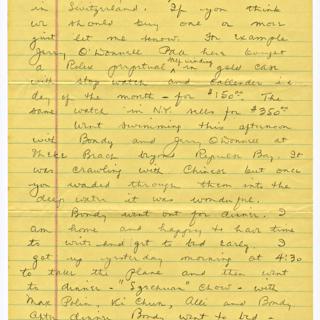 in Switzerland. If you think
we should buy one or more
just let me know. For example
Jerry O'Donnell Paa here bought
a Rolex perpetual self winding in gold case
with stop watch and callender i.e.
day of the month - for $150.00. The
same watch in N.Y. sells for $350.00
Went swimming this afternoon
with Bondy and Jerry O'Donnell at
Beach beyond Repulse Bay. It
was crawling with Chinese but once
you waded through them into the
deep water it was wonderful.
Bondy went out for dinner. I
am home and happy to have time
to write and get to bed early. I
got up yesterday morning at 4:30
to take the plane and then went
to dinner - "Szechuan" Chow - with
Max Polin, Ki Chun, Alli and Bondy.
After dinner Bondy went to bed -